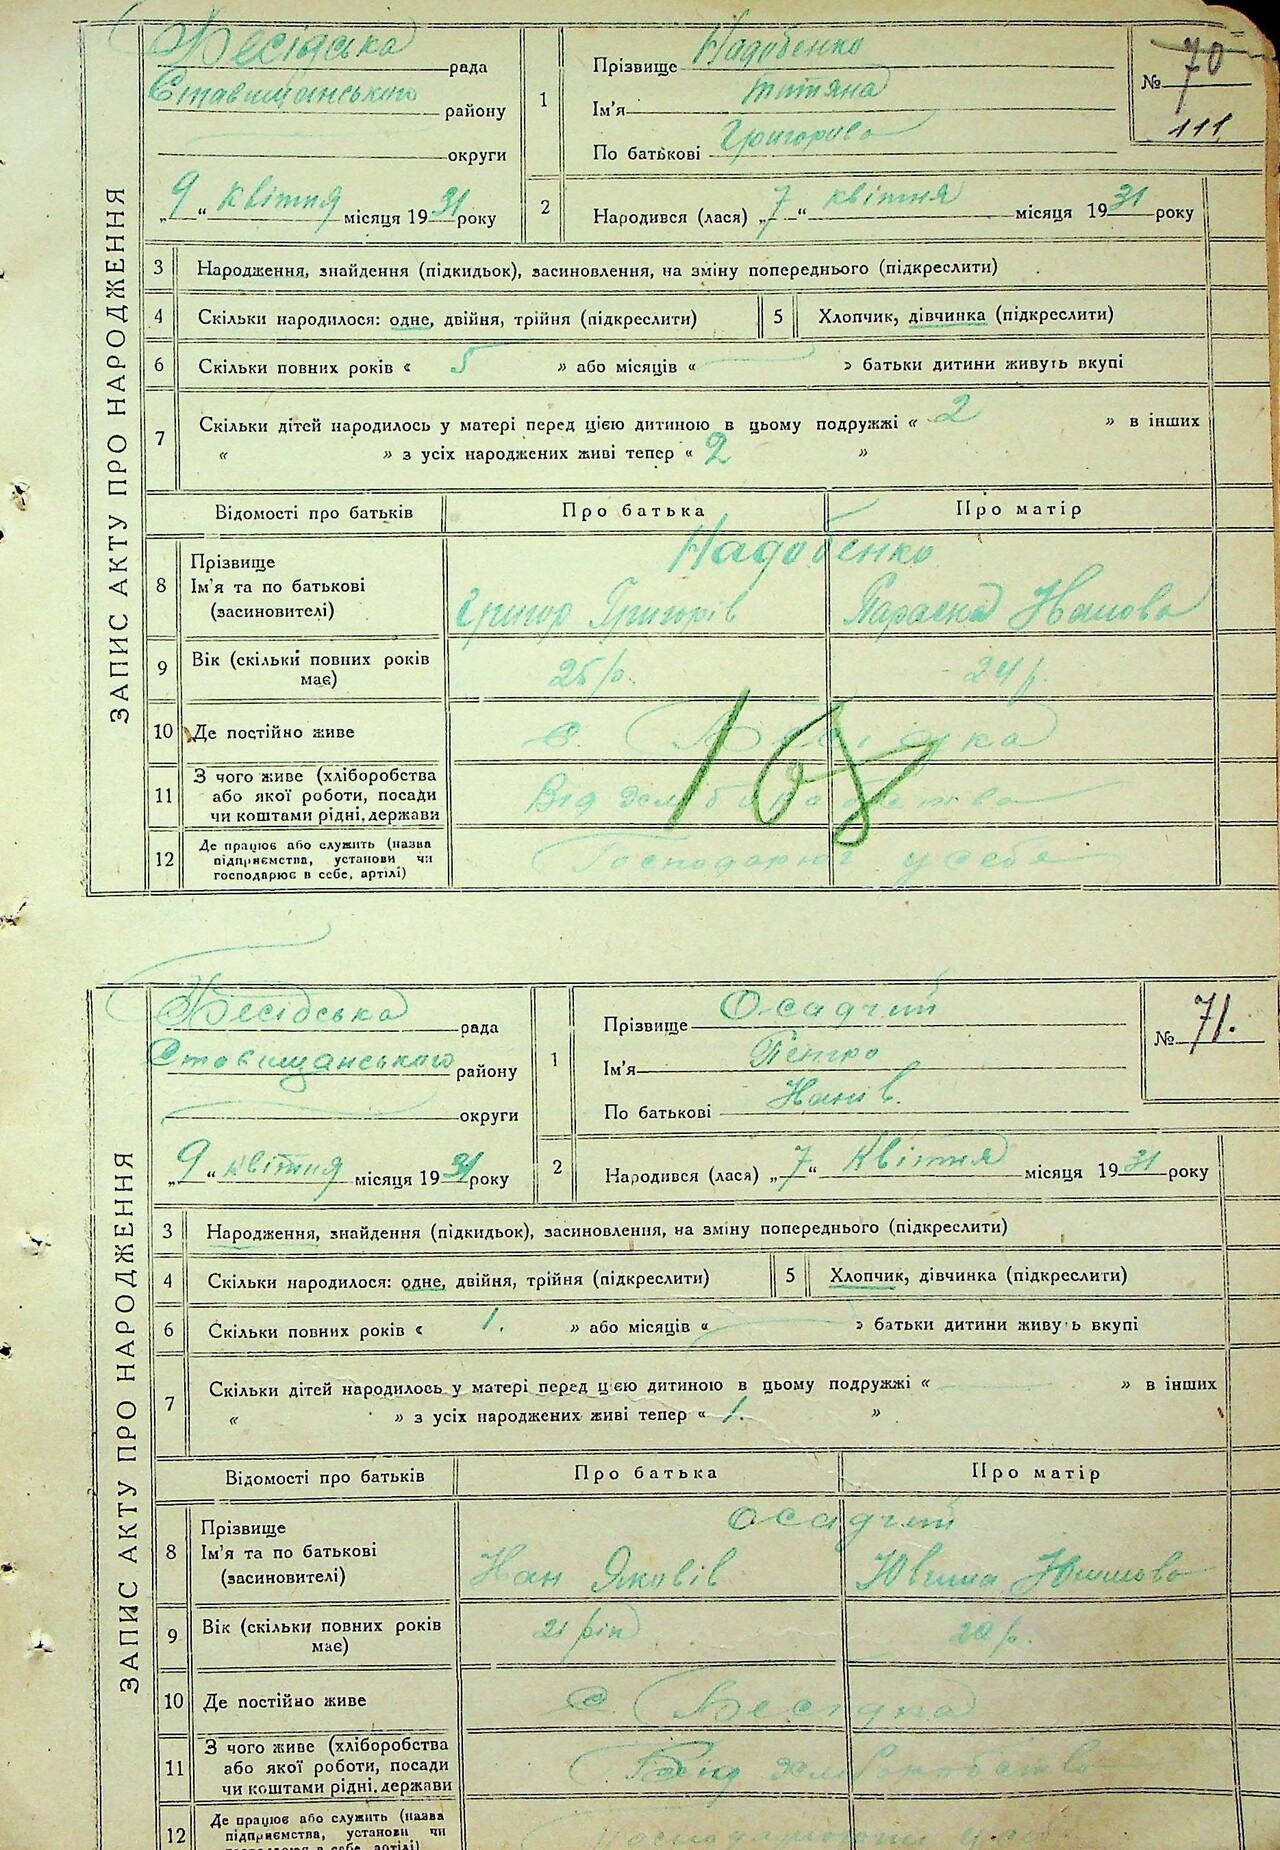 ЗАПИС АКТУ ПРО НАРОДЖЕННЯ
Бесідська рада
Ставищанського району
округи
„9“ квітня місяця 1931 року
1
Прізвище Надобенко
Ім'я Титяна
По батькові Григорова
№ 70
111
2
Народився (лася) „7“ квітня місяця 1931 року
3 Народження, знайдення (підкидьок), засиновлення, на зміну попереднього (підкреслити)
4 Скільки народилося: одне, двійня, трійня (підкреслити)
5 Хлопчик, дівчинка (підкреслити)
6 Скільки повних років « 5 » або місяців « » батьки дитини живуть вкупі
7 Скільки дітей народилось у матері перед цією дитиною в цьому подружжі « 2 » в інших
« » з усіх народжених живі тепер « 2 »
Відомості про батьків Про батька Про матір
8 Прізвище
Ім'я та по батькові
(засиновителі)
Надобенко
Григор Григорів Параска Иванова
9 Вік (скільки повних років
має)
25 р. 24 р.
10 Де постійно живе с. Бесідка
11 З чого живе (хліборобства
або якої роботи, посади
чи коштами рідні, держави
Від хліборобства
12 Де працює або служить (назва
підприємства, установи чи
господарює в себе, артілі)
Господарює у себе
ЗАПИС АКТУ ПРО НАРОДЖЕННЯ
Бесідська рада
Ставищанського району
округи
„9“ квітня місяця 1931 року
1
Прізвище Осадчий
Ім'я Петро
По батькові Иванів.
№ 71.
2
Народився (лася) „7“ Квітня місяця 1931 року
3 Народження, знайдення (підкидьок), засиновлення, на зміну попереднього (підкреслити)
4 Скільки народилося: одне, двійня, трійня (підкреслити)
5 Хлопчик, дівчинка (підкреслити)
6 Скільки повних років « 1. » або місяців « » батьки дитини живуть вкупі
7 Скільки дітей народилось у матері перед цією дитиною в цьому подружжі « » в інших
« » з усіх народжених живі тепер « 1. »
Відомості про батьків Про батька Про матір
8 Прізвище
Ім'я та по батькові
(засиновителі)
Осадчий
Иван Яковів
9 Вік (скільки повних років
має)
21 рік 20 р.
10 Де постійно живе с. Бесідка
11 З чого живе (хліборобства
або якої роботи, посади
чи коштами рідні, держави
хліборобства
12 Де працює або служить (назва
підприємства, установи чи
господарює в себе, артілі)